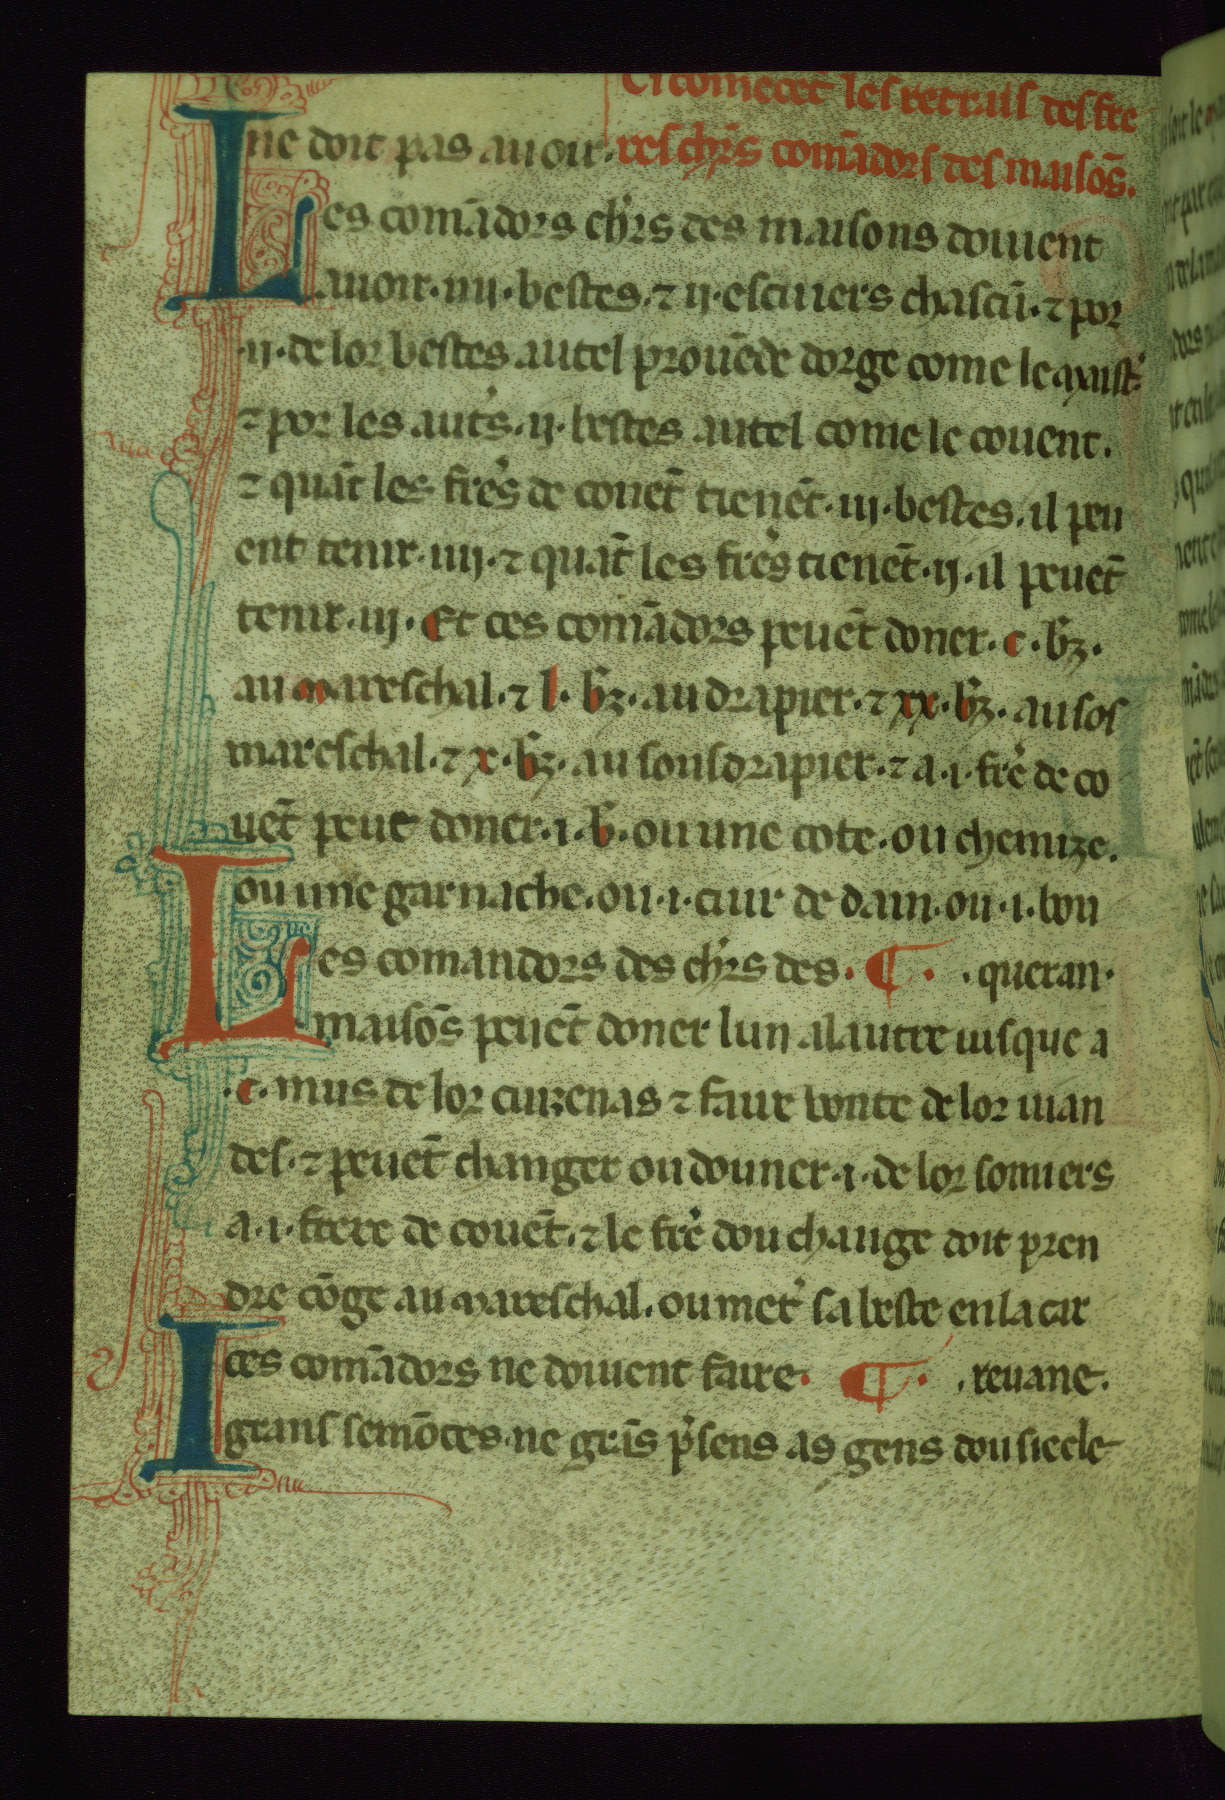 Ci comēcēt les retrais des fre
ne doit pas auoir. res chr̄s comādors des maisōs.
Les comādors chr̄s des maisons doiuent
auoir .iiij. bestes. ⁊ ij. escuiers chascū. ⁊ por
.ij. de lor bestes autel prouēde dorge come le maist'.
⁊ por les aut's .ij. bestes autel come le couent.
⁊ quāt les fre's de couēt tienēt .iij. bestes. il peu
ent tenir .iiij. ⁊ quāt les fre's tienēt .ij. il peuēt
tenir .iij. Et ces comādors peuēt doner .c. bz̄.
au mareschal. ⁊ l. bz̄. au drapier. ⁊ xx. bz̄. au sos
mareschal. ⁊ x. bz̄. au sousdrapier. ⁊ a .i. fre' de co
uēt peut doner .i. b̄. ou une cote. ou chemize.
ou une garnache. ou .i. cuir de dain. ou .i. bou
Les comandors des chr̄s des. ¶. .queran.
maisōs peuēt doner lun a lautre iusque a
.c. mus de lor cuizenas ⁊ faire bonte de lor uian
des. ⁊ peuēt changer ou douner .i. de lor somiers
a .i. frere de couēt. ⁊ le fre' dou change doit pren
dre cōge au mareschal. ou met' sa beste en la car
Ices comādors ne doiuent faire. ¶. .reuane.
grans semōces. ne grās p'sens as gens dou siecle